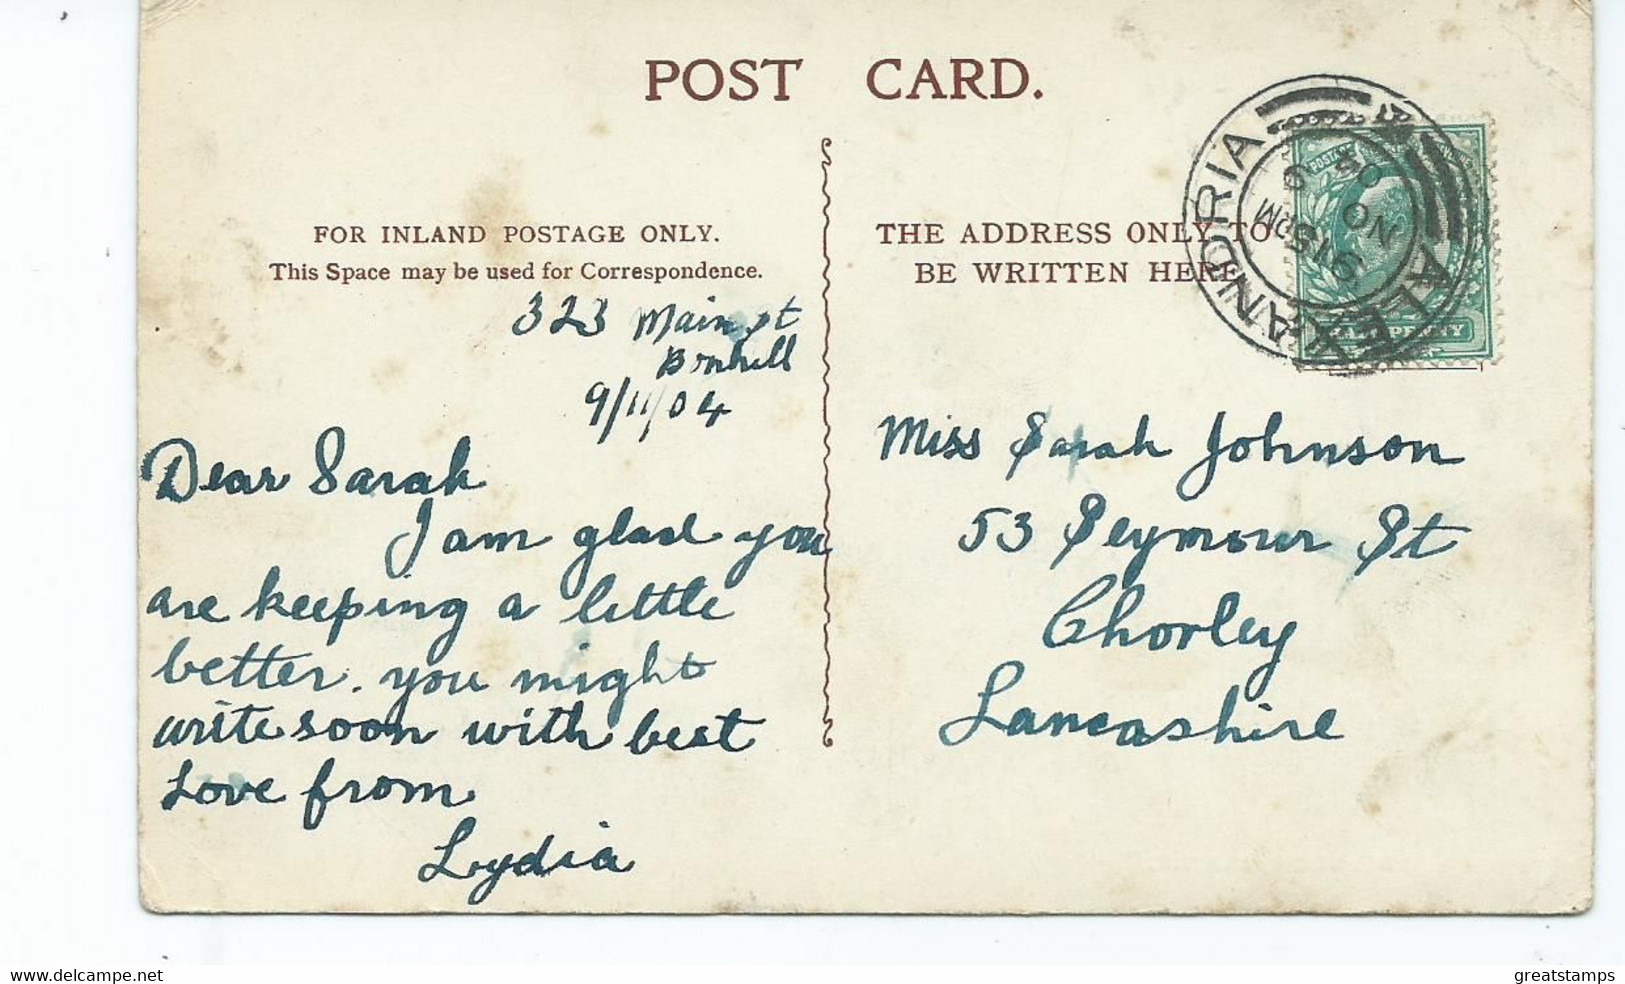 POST CARD.
FOR INLAND POSTAGE ONLY.
This Space may be used for Correspondence.
323 Main st
Bonhill
9/11/04
Dear Sarah
I am glad you
are keeping a little
better. you might
write soon with best
Love from
Lydia
THE ADDRESS ONLY TO
BE WRITTEN HERE
ALEXANDRIA
9 15 PM
NO
Miss Sarah Johnson
53 Seymour St
Chorley
Lancashire
www.delcampe.net
greatstamps